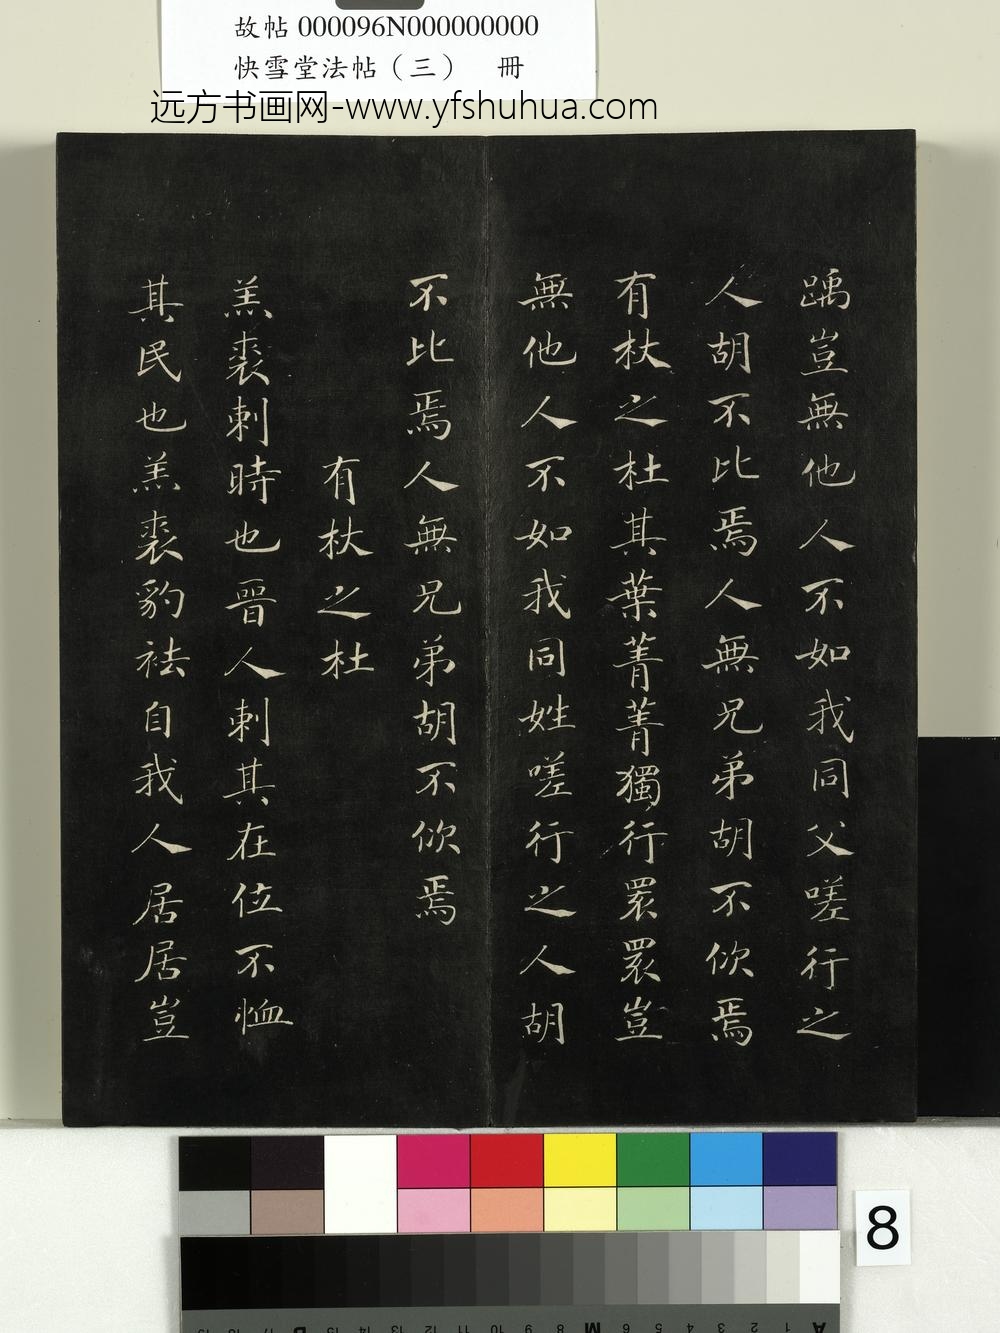 故帖000096N000000000
快雪堂法帖（三） 冊
远方书画网-www.yfshuhua.com
踽豈無他人不如我同父嗟行之
人胡不比焉人無兄弟胡不佽焉
有杕之杜其葉菁菁獨行睘睘豈
無他人不如我同姓嗟行之人胡
不比焉人無兄弟胡不佽焉
有杕之杜
羔裘刺時也晉人刺其在位不恤
其民也羔裘豹袪自我人居居豈
8
A 1 2 3 4 5 6 M 8 9 10 11 12 13 14 15 B 17 18 19